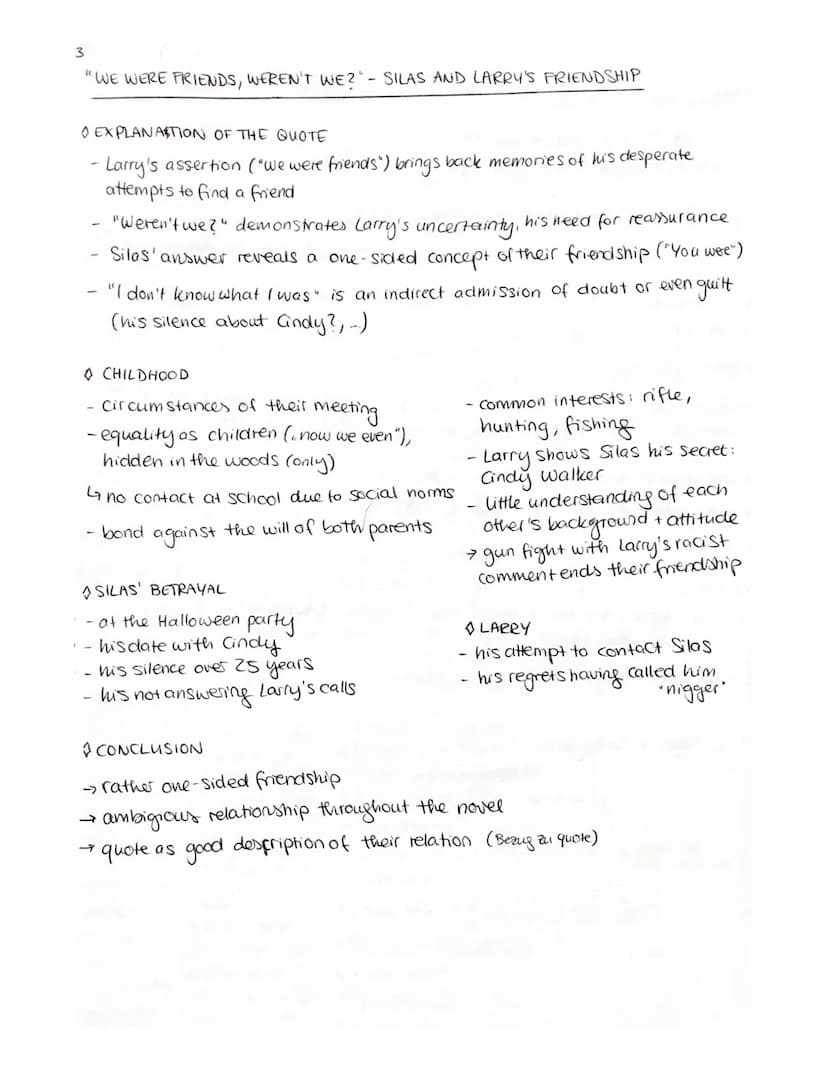 3
"WE WERE FRIENDS, WEREN'T WE?" - SILAS AND LARRY'S FRIENDSHIP
◊ EXPLANATION OF THE QUOTE
- Larry's assertion ("we were friends") brings back memories of his desperate
attempts to find a friend
- "Weren't we?" demonstrates Larry's uncertainty, his need for reassurance
- Silas' answer reveals a one-sided concept of their friendship ("You wee")
- "I don't know what I was" is an indirect admission of doubt or even guilt
(his silence about Cindy?,...)
◊ CHILDHOOD
- circumstances of their meeting
- equality as children ("now we even"),
hidden in the woods (only)
↳ no contact at school due to social norms
- bond against the will of both parents
- common interests: rifle,
hunting, fishing
- Larry shows Silas his secret:
Cindy Walker
- little understanding of each
other's background + attitude
→ gun fight with Larry's racist
comment ends their friendship
◊ SILAS' BETRAYAL
- at the Halloween party
- his date with Cindy
- his silence over 25 years
- his not answering Larry's calls
◊ LARRY
- his attempt to contact Silas
- his regrets having called him
"nigger"
◊ CONCLUSION
→ rather one-sided friendship
→ ambigious relationship throughout the novel
→ quote as good desfription of their relation (Bezug zu quote)